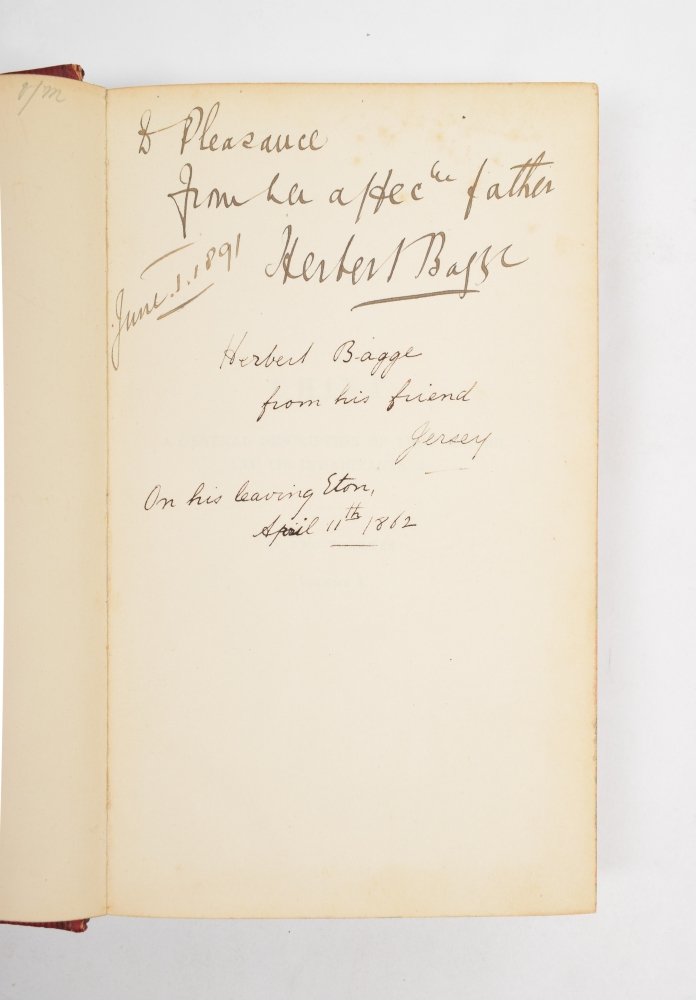 To Pleasance
from her affec^te father
Herbert Bagge
June.1.1891
Herbert Bagge
from his friend
Jersey
On his leaving Eton,
April 11th 1862